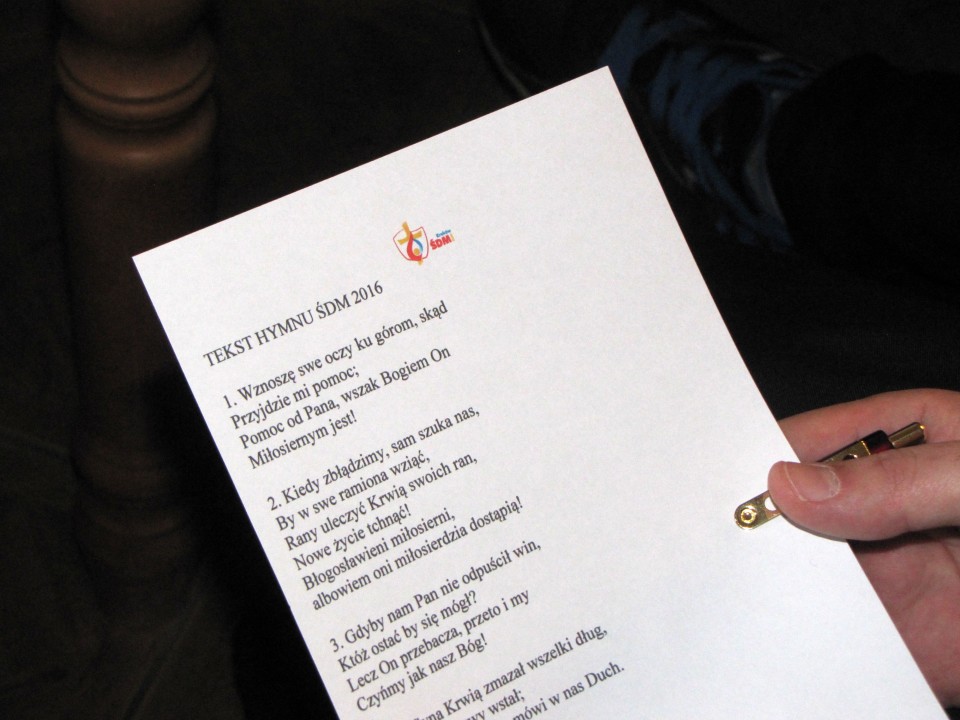 Kraków
ŚDM
TEKST HYMNU ŚDM 2016
1. Wznoszę swe oczy ku górom, skąd
Przyjdzie mi pomoc;
Pomoc od Pana, wszak Bogiem On
Miłosiernym jest!
2. Kiedy zbłądzimy, sam szuka nas,
By w swe ramiona wziąć,
Rany uleczyć Krwią swoich ran,
Nowe życie tchnąć!
Błogosławieni miłosierni,
albowiem oni miłosierdzia dostąpią!
3. Gdyby nam Pan nie odpuścił win,
Któż ostać by się mógł?
Lecz On przebacza, przeto i my
Czyńmy jak nasz Bóg!
Krwią zmazał wszelki dług,
wstał;
mówi w nas Duch.